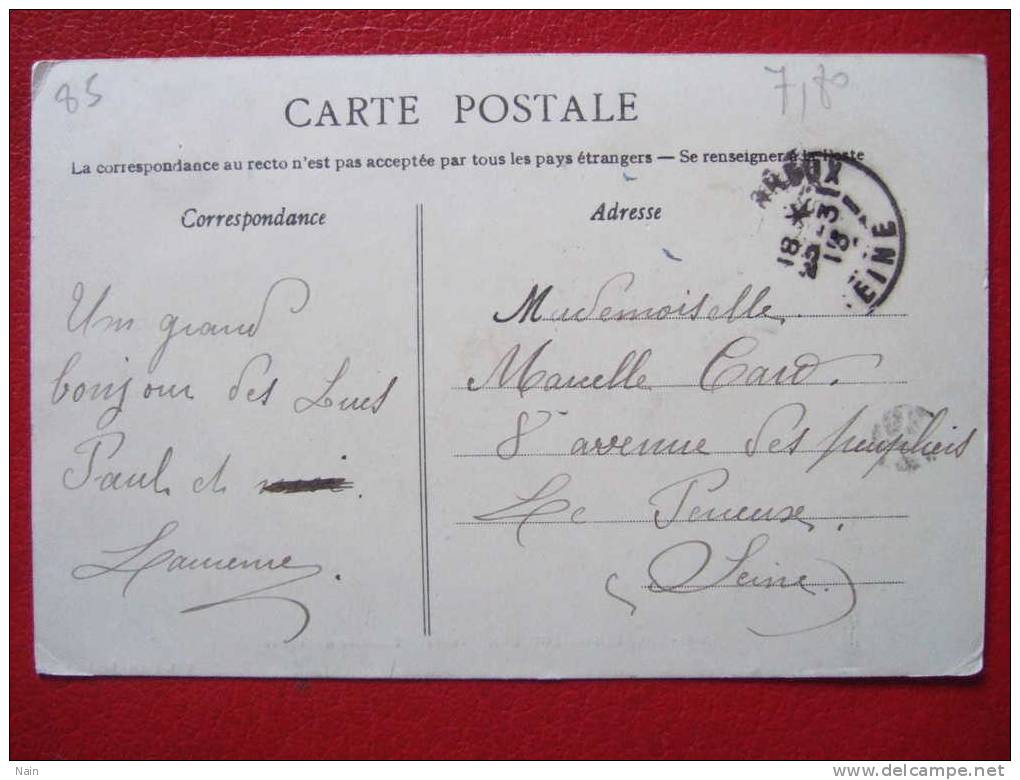 85
7,80
CARTE POSTALE
La correspondance au recto n'est pas acceptée par tous les pays étrangers — Se renseigner à la Poste
Correspondance
Adresse
18 * 
EINE
Un grand
bonjour des Lucs
Paul et
Laurence.
Mademoiselle
Marcelle Card.
8 avenue des peupliers
Le Perreux.
(Seine)
Nain
delcampe.net